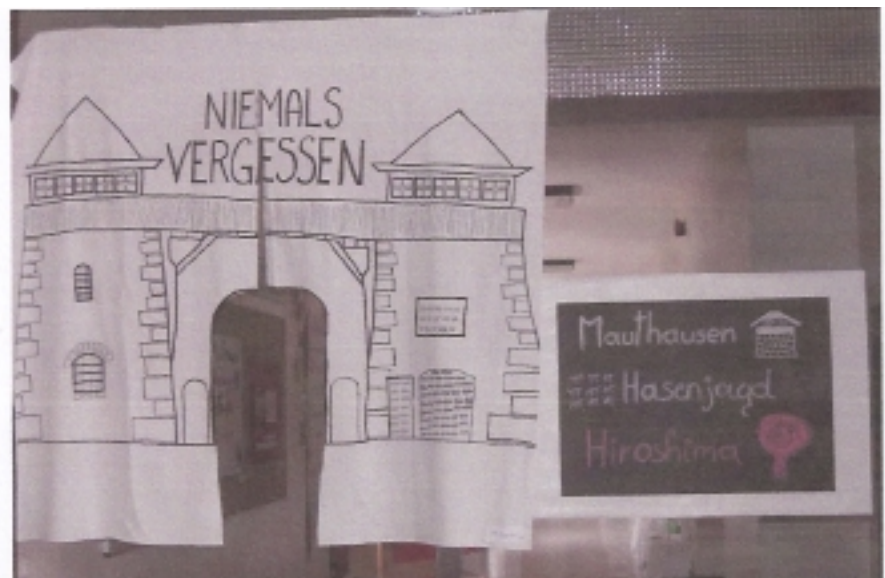 NIEMALS
VERGESSEN
Mauthausen
Hasenjagd
Hiroshima